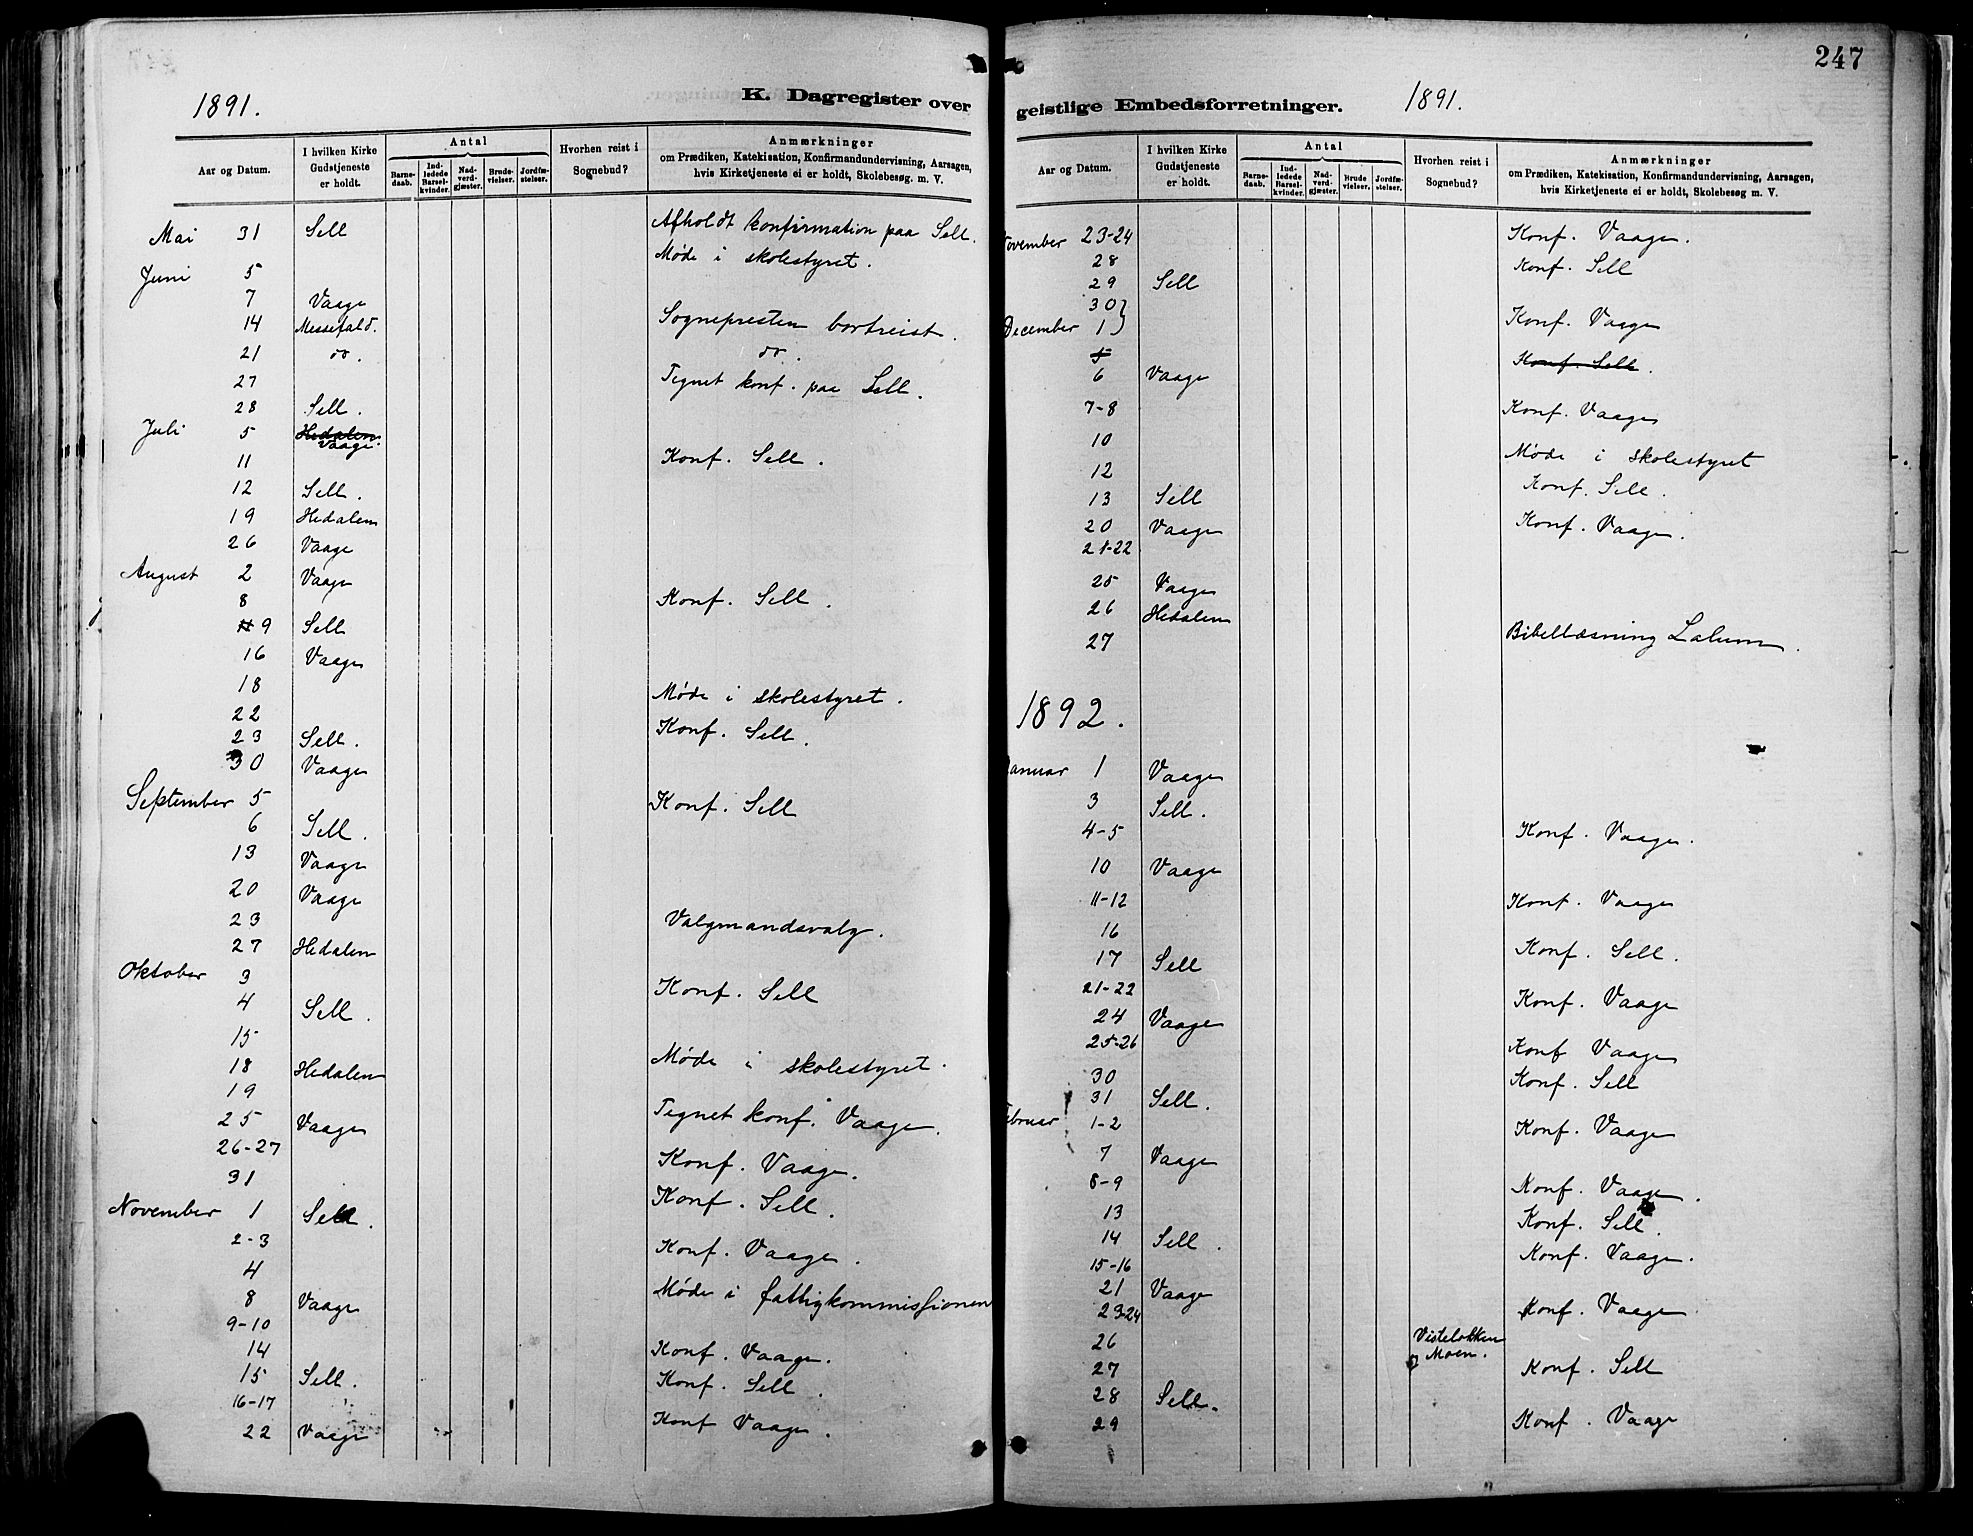 247
1891.
K. Dagregister over
Aar og Datum.
I hvilken Kirke Gudstjeneste er holdt.
Antal
Barnedaab.
Indledede Barselkvinder.
Nadverdgjæster.
Brudevielser.
Jordfæstelser.
Hvorhen reist i Sognebud?
Anmærkninger
om Prædiken, Katekisation, Konfirmandundervisning, Aarsagen, hvis Kirketjeneste ei er holdt, Skolebesøg. m. V.
Mai 31 Sell Afholdt konfirmation paa Sell.
Juni 5 Møde i skolestyret.
7 Vaage
14 Messefald. Sognepresten bortreist.
21 do. do.
27 Tegnet konf. paa Sell.
28 Sell.
Juli 5 Hedalen Vaage.
11 Konf. Sell.
12 Sell.
19 Hedalen
26 Vaage
August 2 Vaage
8 Konf. Sell.
9 Sell
16 Vaage
18 Møde i skolestyret.
22 Konf. Sell.
23 Sell.
30 Vaage
September 5 Konf. Sell
6 Sell.
13 Vaage
20 Vaage
23 Valgmandsvalg.
27 Hedalen
Oktober 3 Konf. Sell
4 Sell.
15 Møde i skolestyret.
18 Hedalen
19 Tegnet konf. Vaage.
25 Vaage
26-27 Konf. Vaage.
31 Konf. Sell.
November 1 Sell.
2-3 Konf. Vaage.
4 Møde i fattigkommissionen
8 Vaage
9-10 Konf. Vaage.
14 Konf. Sell.
15 Sell.
16-17 Konf Vaage.
22 Vaage
geistlige Embedsforretninger.
1891.
Aar og Datum.
I hvilken Kirke Gudstjeneste er holdt.
Antal
Barnedaab.
Indledede Barselkvinder.
Nadverdgjester.
Brudevielser.
Jordfæstelser.
Hvorhen reist i Sognebud?
Anmærkninger
om Prædiken, Katekisation, Konfirmandundervisning, Aarsagen, hvis Kirketjeneste ei er holdt, Skolebesøg m. V.
November 23-24 Konf. Vaage.
28 Konf. Sell
29 Sell
30
December 1 Konf. Vaage
5 Konf. Sell.
6 Vaage
7-8 Konf. Vaage
10 Møde i skolestyret
12 Konf. Sell.
13 Sell
20 Vaage
21-22 Konf. Vaage.
25 Vaage
26 Hedalen
27 Bibellæsning Lalum.
1892.
Januar 1 Vaage
3 Sell.
4-5 Konf. Vaage.
10 Vaage
11-12 Konf. Vaage
16 Konf. Sell.
17 Sell
21-22 Konf. Vaage
24 Vaage
25-26 Konf Vaage
30 Konf. Sell
31 Sell.
Februar 1-2 Konf. Vaage
7 Vaage
8-9 Konf. Vaage.
13 Konf. Sell.
14 Sell.
15-16 Konf. Vaage.
21 Vaage
23-24 Konf. Vaage
26 Moen.
27 Konf. Sell
28 Sell.
29 Konf. Vaage